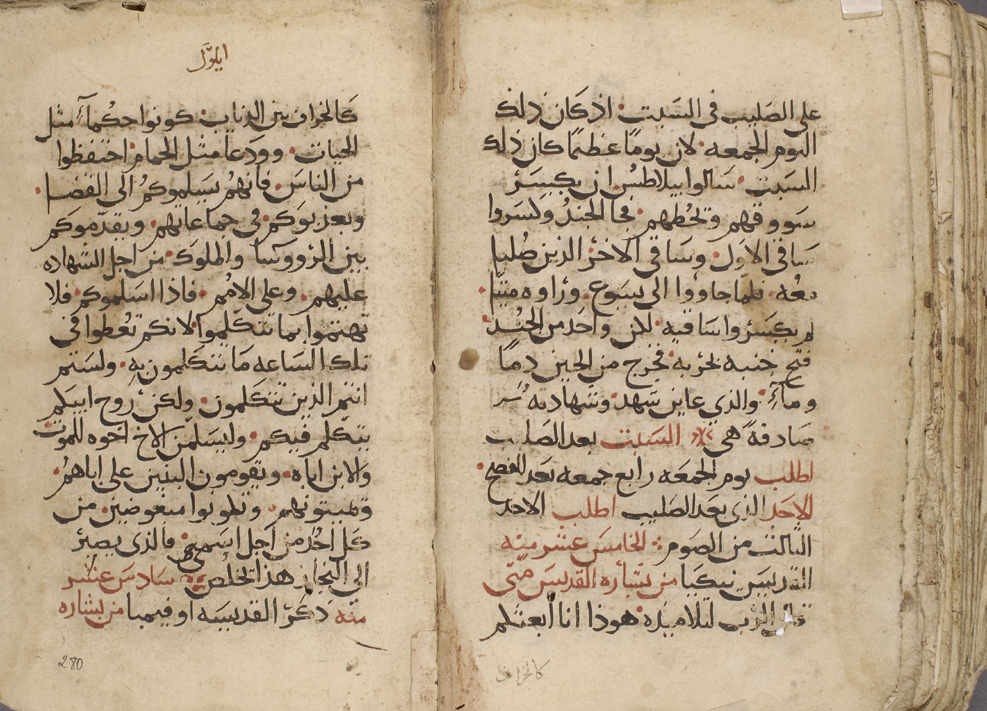 على الصليب فى السبت اذ كان ذلك
اليوم الجمعه لان يومًا عظيمًا كان ذلك
السبت سالوا بيلاطس ان يكسر
سووقهم وتحطهم فجا الجند وكسروا
ساقى الاول وساقى الاخر الذين صلبا
معه فلما جاووا الى يسوع وراوه ميتا
لم يكسروا ساقيه لكن واحد من الجند
فتح جنبه بحربه فخرج من الحين دمًا
ومآء والذي عاين شهد وشهادته
صادقه هى السبت بعد الصليب
اطلب يوم الجمعه رابع جمعه بعد الفصح
للاحد الذى بعد الصليب اطلب الاحد
الثالث من الصوم الخامس عشر منه
القديس نيكيا من بشاره القديس متى
قال الرب لتلاميذه هوذا انا ابعثكم
كالخراف
ايلول
كالخراف بين الذياب كونوا حكمآء مثل
الحيات وودعا مثل الحمام احتفظوا
من الناس فانهم يسلموكم الى القضا
ويعذبوكم فى جماعاتهم ويقدموكم
بين الرووسا والملوك من اجل الشهاده
عليهم وعلى الامم فاذا اسلموكم فلا
تهتموا بما تتكلموا لانكم تعطوا فى
تلك الساعه ما تتكلمون به ولستم
انتم الذين تتكلمون ولكن روح ابيكم
تتكلم فيكم وليسلمن الاخ اخوه للموت
والابن اباه ويقومون البنين على اباهم
وميتونهم وتكونوا مبغوضين من
كل احد من اجل اسمى فالذى يصبر
الى التجاز هذا تخلص سادس عشر
منه ذكر القديسه اوفيميا من بشاره
280